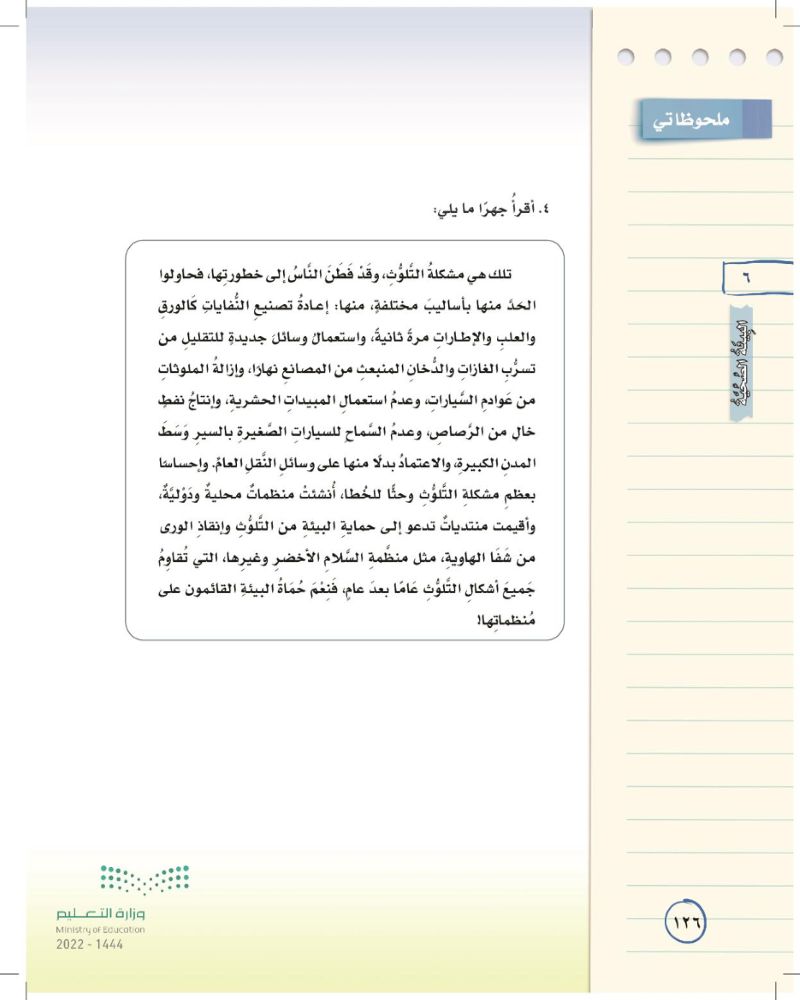 ملحوظاتي
٤. أقرأُ جهرًا ما يلي:
تلك هي مشكلةُ التَّلوُّثِ، وقَدْ فَطَنَ النَّاسُ إلى خطورتِها، فحاولوا
الحَدَّ منها بأساليبَ مختلفةٍ، منها: إعادةُ تصنيعِ النُّفاياتِ كَالورقِ
والعلبِ والإطاراتِ مرةً ثانيةً، واستعمالُ وسائلَ جديدةٍ للتقليلِ من
تسرُّبِ الغازاتِ والدُّخانِ المنبعثِ من المصانعِ نهارًا، وإزالةُ الملوثاتِ
من عَوادمِ السَّياراتِ، وعدمُ استعمالِ المبيداتِ الحشريةِ، وإنتاجُ نفطٍ
خالٍ من الرَّصاصِ، وعدمُ السَّماح للسياراتِ الصَّغيرةِ بالسيرِ وَسَطَ
المدنِ الكبيرةِ، والاعتمادُ بدلًا منها على وسائلِ النَّقلِ العامِّ. وإحساسًا
بعظمِ مشكلةِ التَّلوُّثِ وحثًّا للخُطا، أُنشئتْ منظماتٌ محليةٌ ودَوْليَّةٌ،
وأقيمت منتدياتٌ تدعو إلى حمايةِ البيئةِ من التَّلوُّثِ وإنقاذِ الورى
من شَفَا الهاويةِ، مثل منظَّمةِ السَّلامِ الأخضرِ وغيرِها، التي تُقاومُ
جَميعَ أشكالِ التَّلوُّثِ عَامًا بعدَ عامٍ، فَنِعْمَ حُمَاةُ البيئةِ القائمون على
مُنظماتِها!
٦
البيئة الصحية
وزارة التعـــليم
Ministry of Education
2022 - 1444
١٢٦